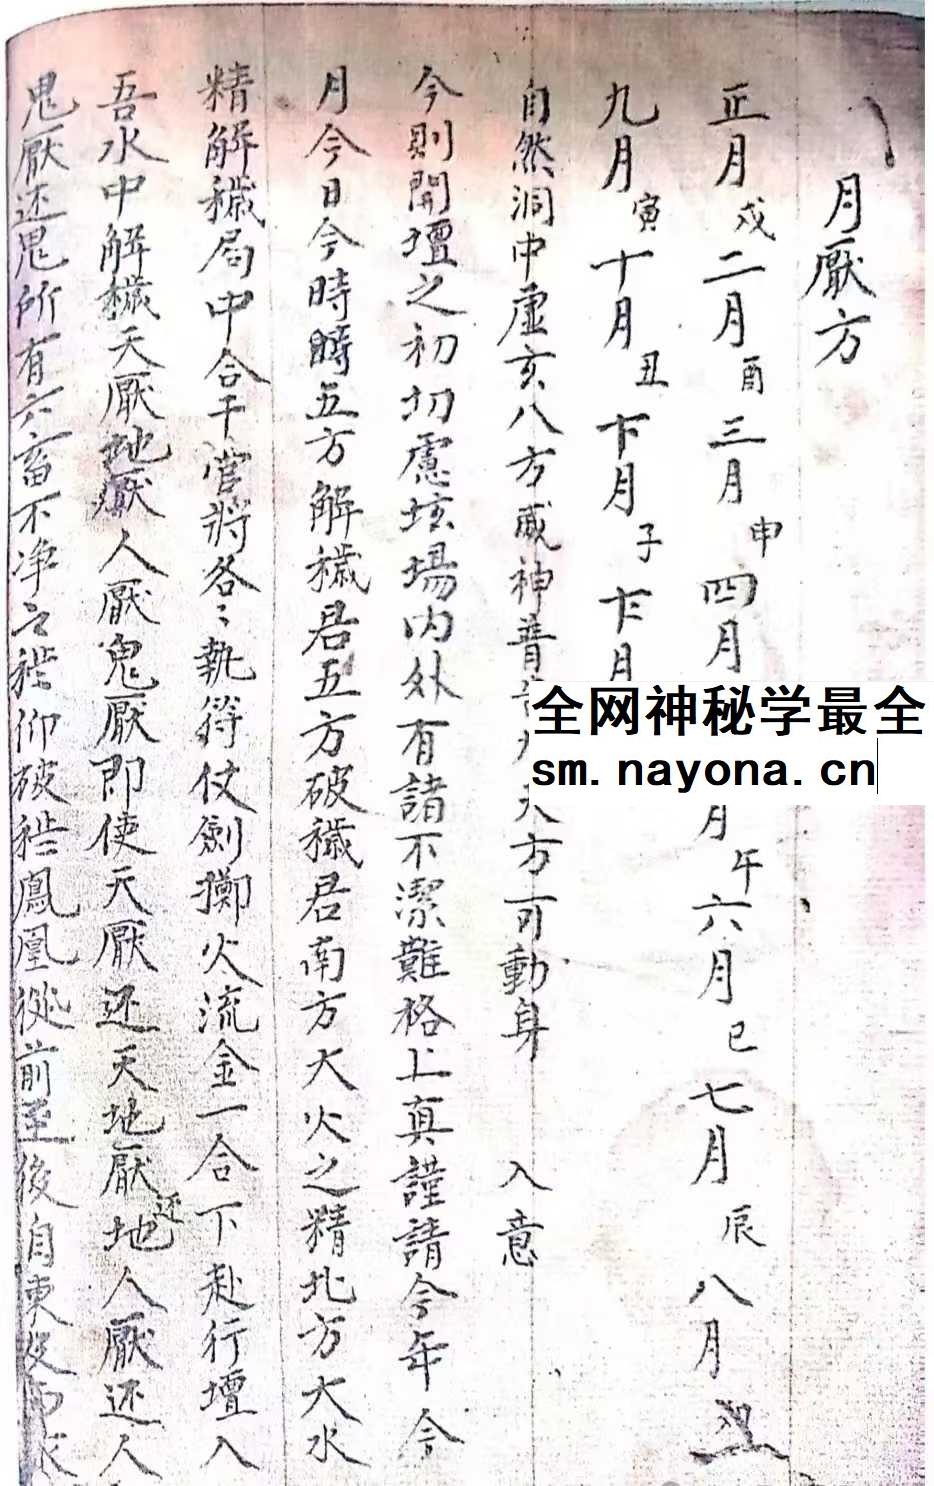 月厭方
正月戌二月酉三月申四月
月午六月巳七月辰八月
九月寅十月丑十一月子十二月
自然洞中虛玄八方威神普
天方可動身　入意
今則開壇之初切慮垓場内外有諸不潔難格上真謹請今年今
月今日今時時五方解穢君五方破穢君南方大火之精北方大水
精解穢局中合干官將各〻執符仗劍擲火流金一合下赴行壇入
吾水中解穢天厭地厭人厭鬼厭即使天厭还天地厭还地人厭还人
鬼厭还鬼所有六畜不净之穢仰破穢鳳凰從前至後自東
全网神秘学最全
sm.nayona.cn